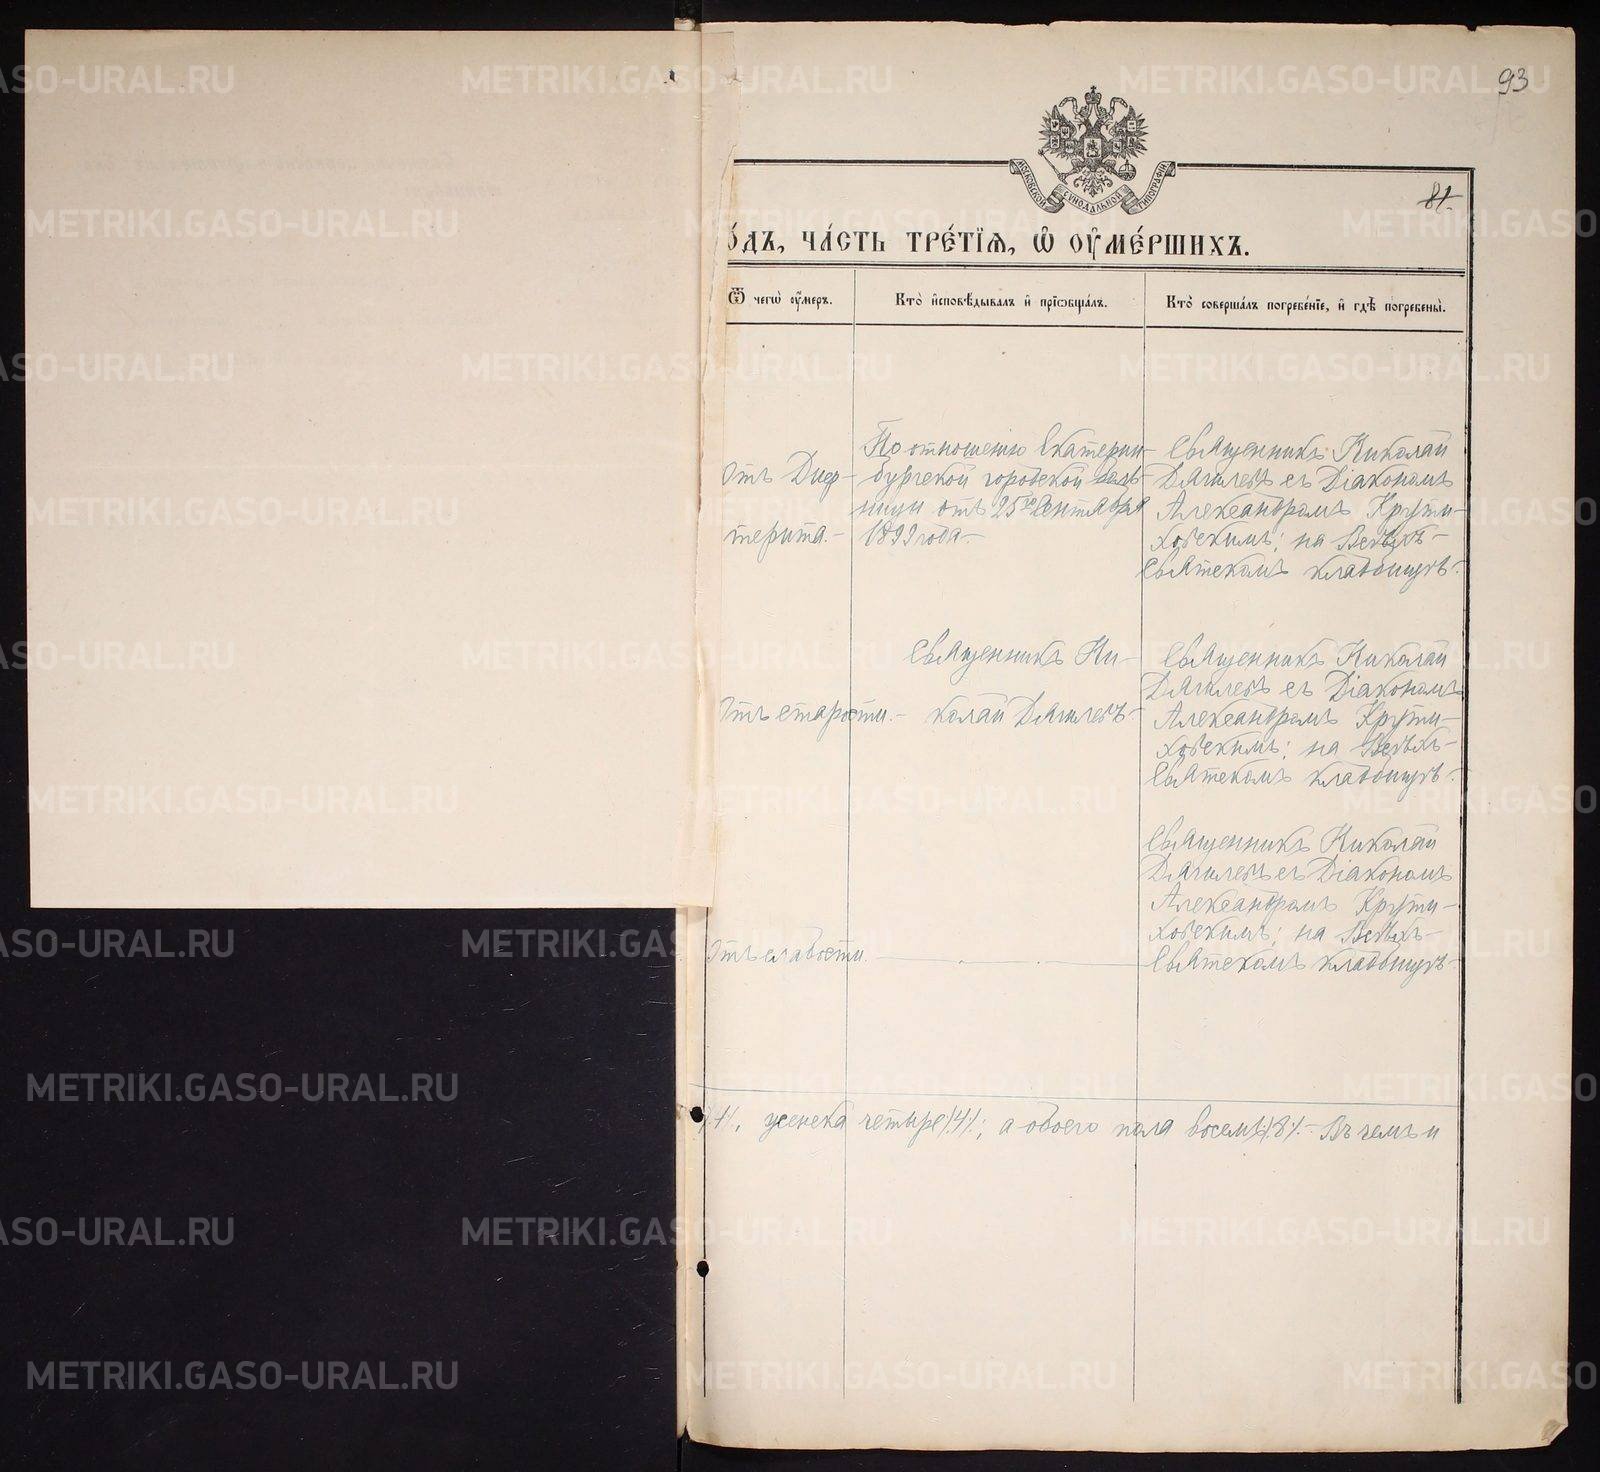 93
МОСКОВСКОЙ СѴНОДАЛЬНОЙ ТИПОГРАФІИ
81.
о́дъ, ча́сть тре́тїѧ, ѡ҆ ᲂу҆ме́ршихъ.
Ѿ чегѡ̀ ᲂу҆́меръ.
Кто̀ и҆сповѣ́дывалъ и҆ прїѡбща́лъ.
Кто̀ соверша́лъ погребе́нїе, и҆ гдѣ̀ погребены̀.
Отъ Диф-
терита.-
По отношенію Екатерин-
бургской городской боль-
ницы отъ 25го Сентября
1899 года.-
Священникъ Николай
Дягилевъ съ Діакономъ
Александромъ Крути-
ховскимъ; на Всѣхъ-
Святскомъ кладбищѣ.-
Отъ старости.-
Священникъ Ни-
колай Дягилевъ.-
Священникъ Николай
Дягилевъ съ Діакономъ
Александромъ Крути-
ховскимъ; на Всѣхъ-
Святскомъ кладбищѣ.-
Отъ слабости.
Священникъ Николай
Дягилевъ съ Діакономъ
Александромъ Крути-
ховскимъ; на Всѣхъ-
Святскомъ кладбищѣ.-
/.4/., женска четыре/.4/.; а обоего пола восемь/.8/.- Въ чемъ и
METRIKI.GASO-URAL.RU